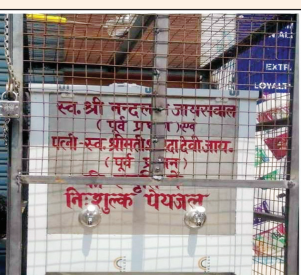 EXTRA
LOYALTY
स्व. श्री नन्दलाल जायसवाल
( पूर्व प्रधान ) एवं
पत्नी-स्व. श्रीमती देवी जाय.
( पूर्व प्रधान )
निःशुल्क पेयजल